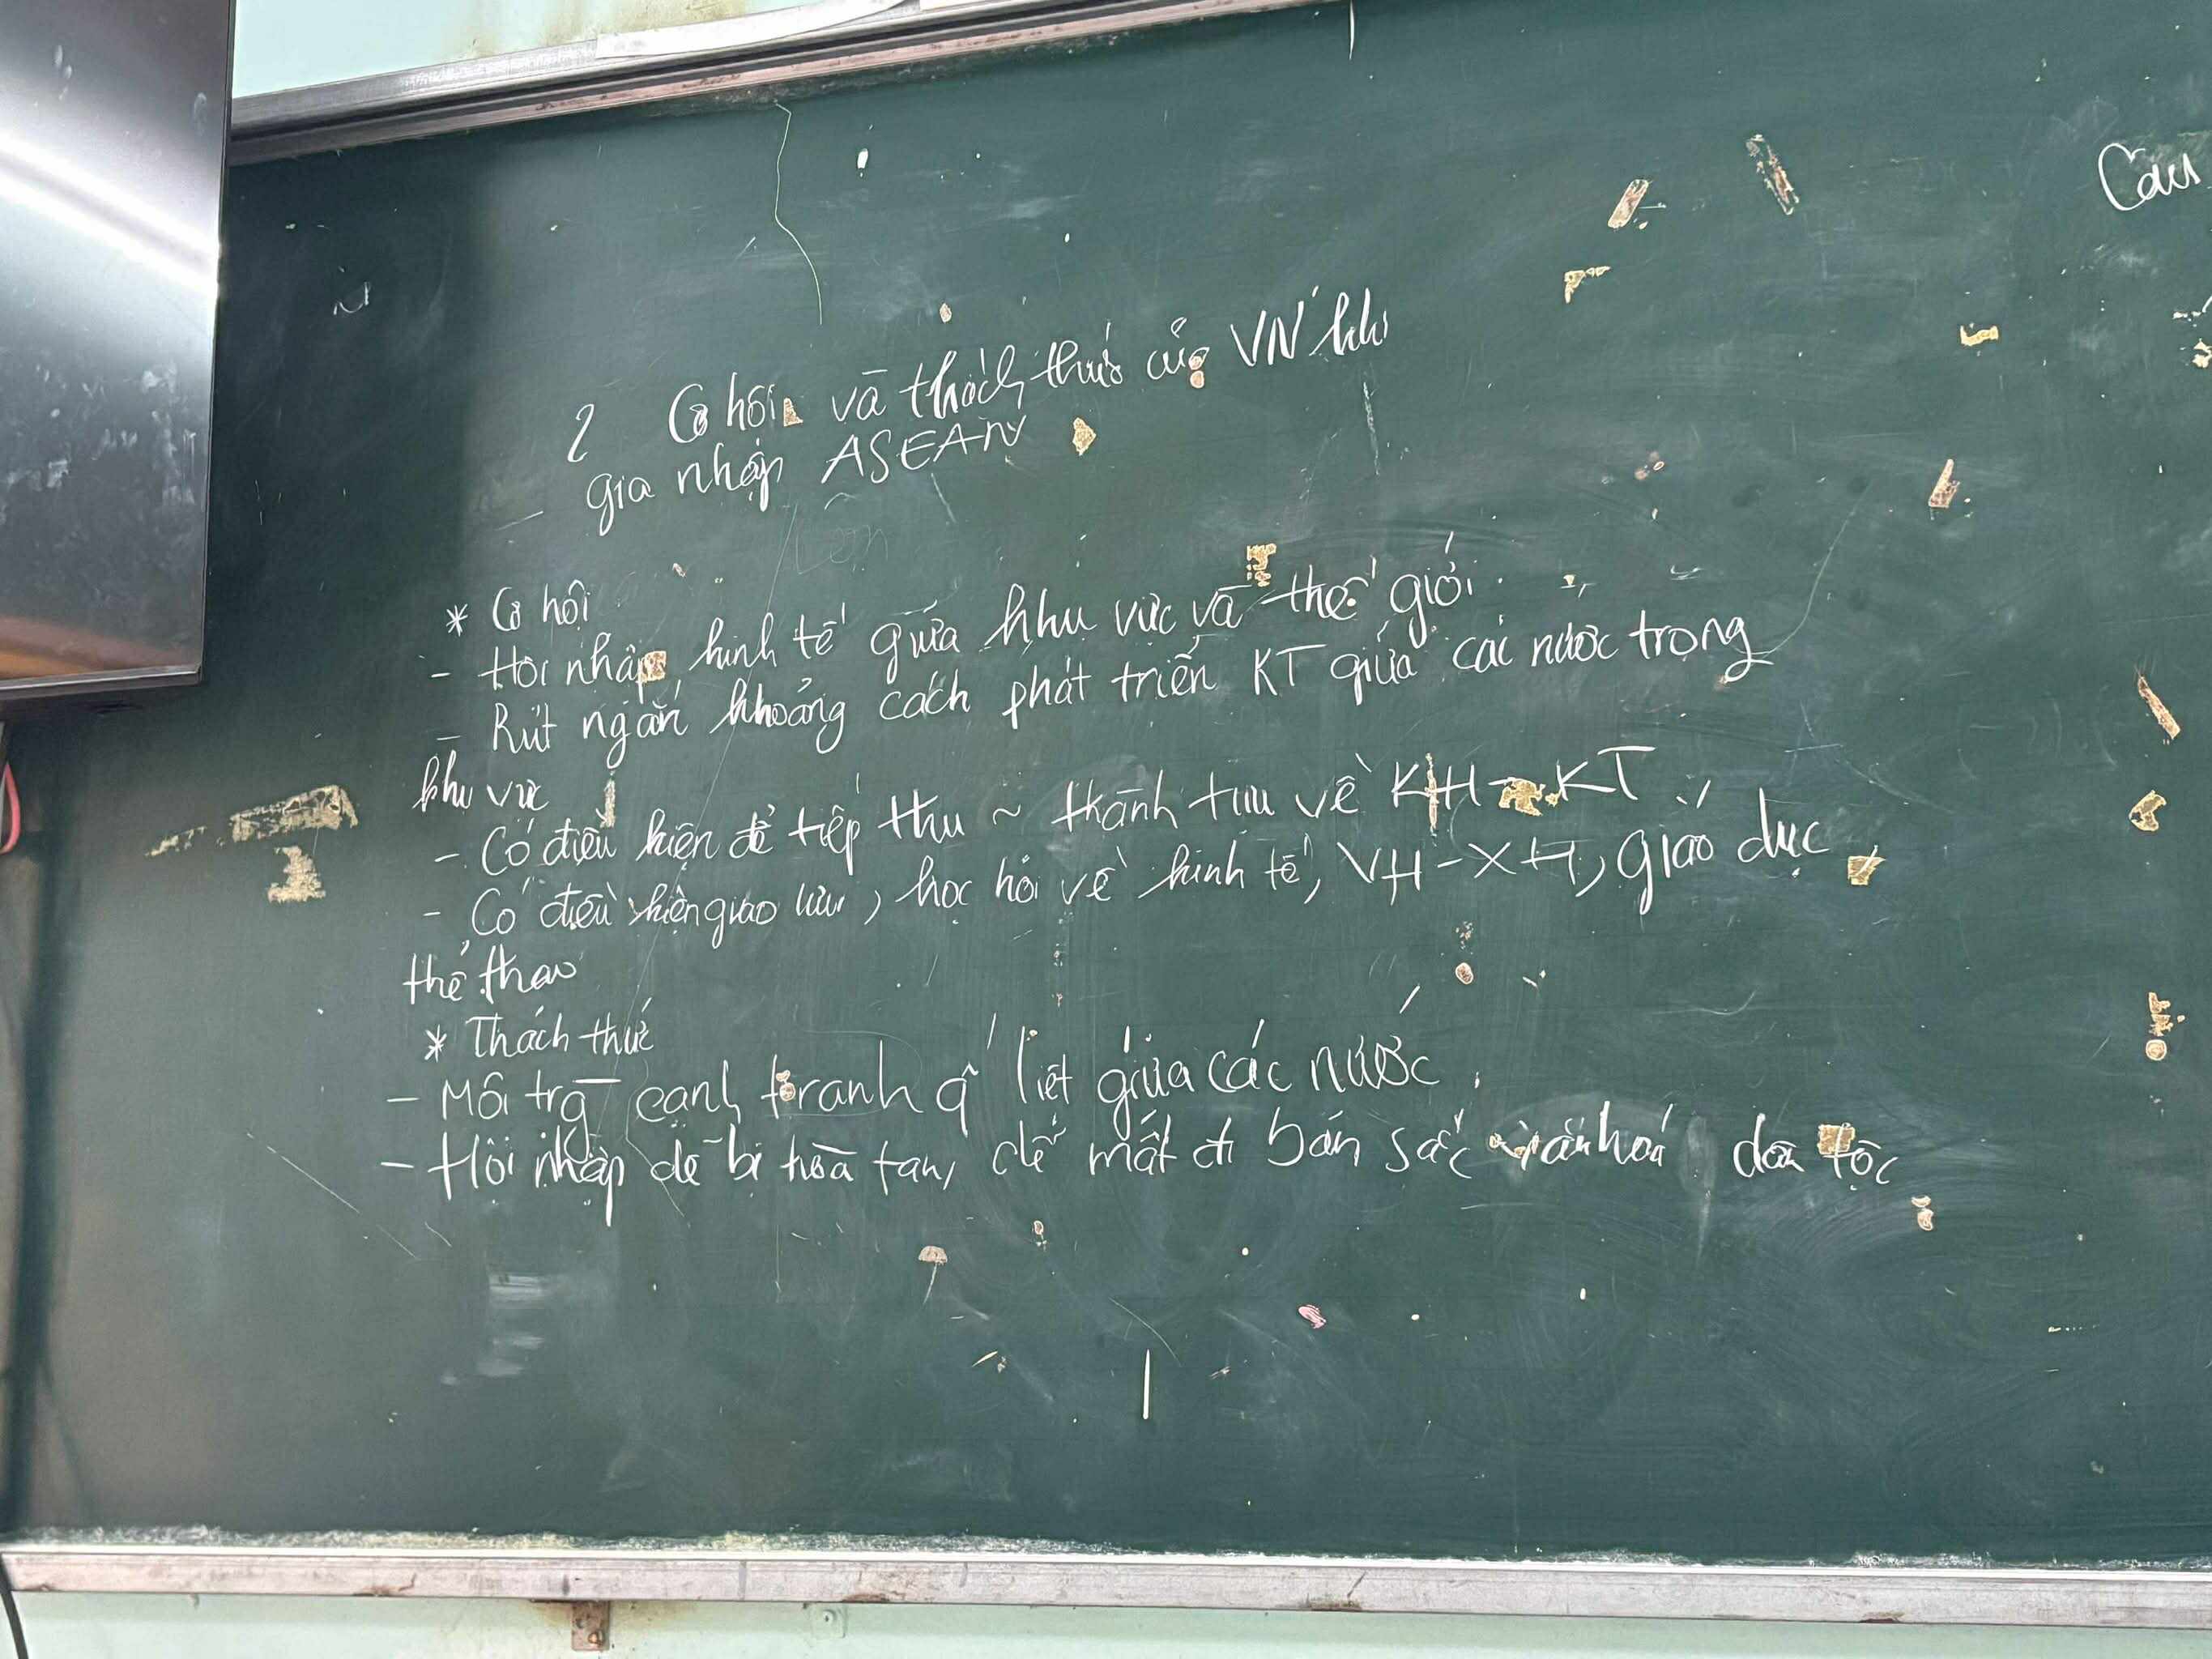 2 Cơ hội và thách thức của VN khi
gia nhập ASEAN
* Cơ hội
- Hội nhập kinh tế giữa khu vực và thế giới.
- Rút ngắn khoảng cách phát triển KT giữa các nước trong
khu vực
- Có điều kiện để tiếp thu ~ thành tựu về KH - KT
- Có điều kiện giao lưu, học hỏi về kinh tế, VH - XH, giáo dục,
thể thao
* Thách thức
- Môi trg cạnh tranh q liệt giữa các nước.
- Hội nhập dễ bị hoà tan, dễ mất đi bản sắc văn hoá dân tộc
Câu